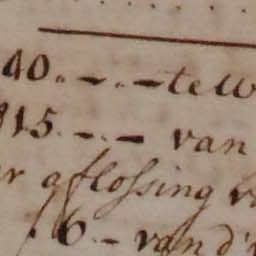 40..-.-te
815.-.- van
aflossing
6.- van d'